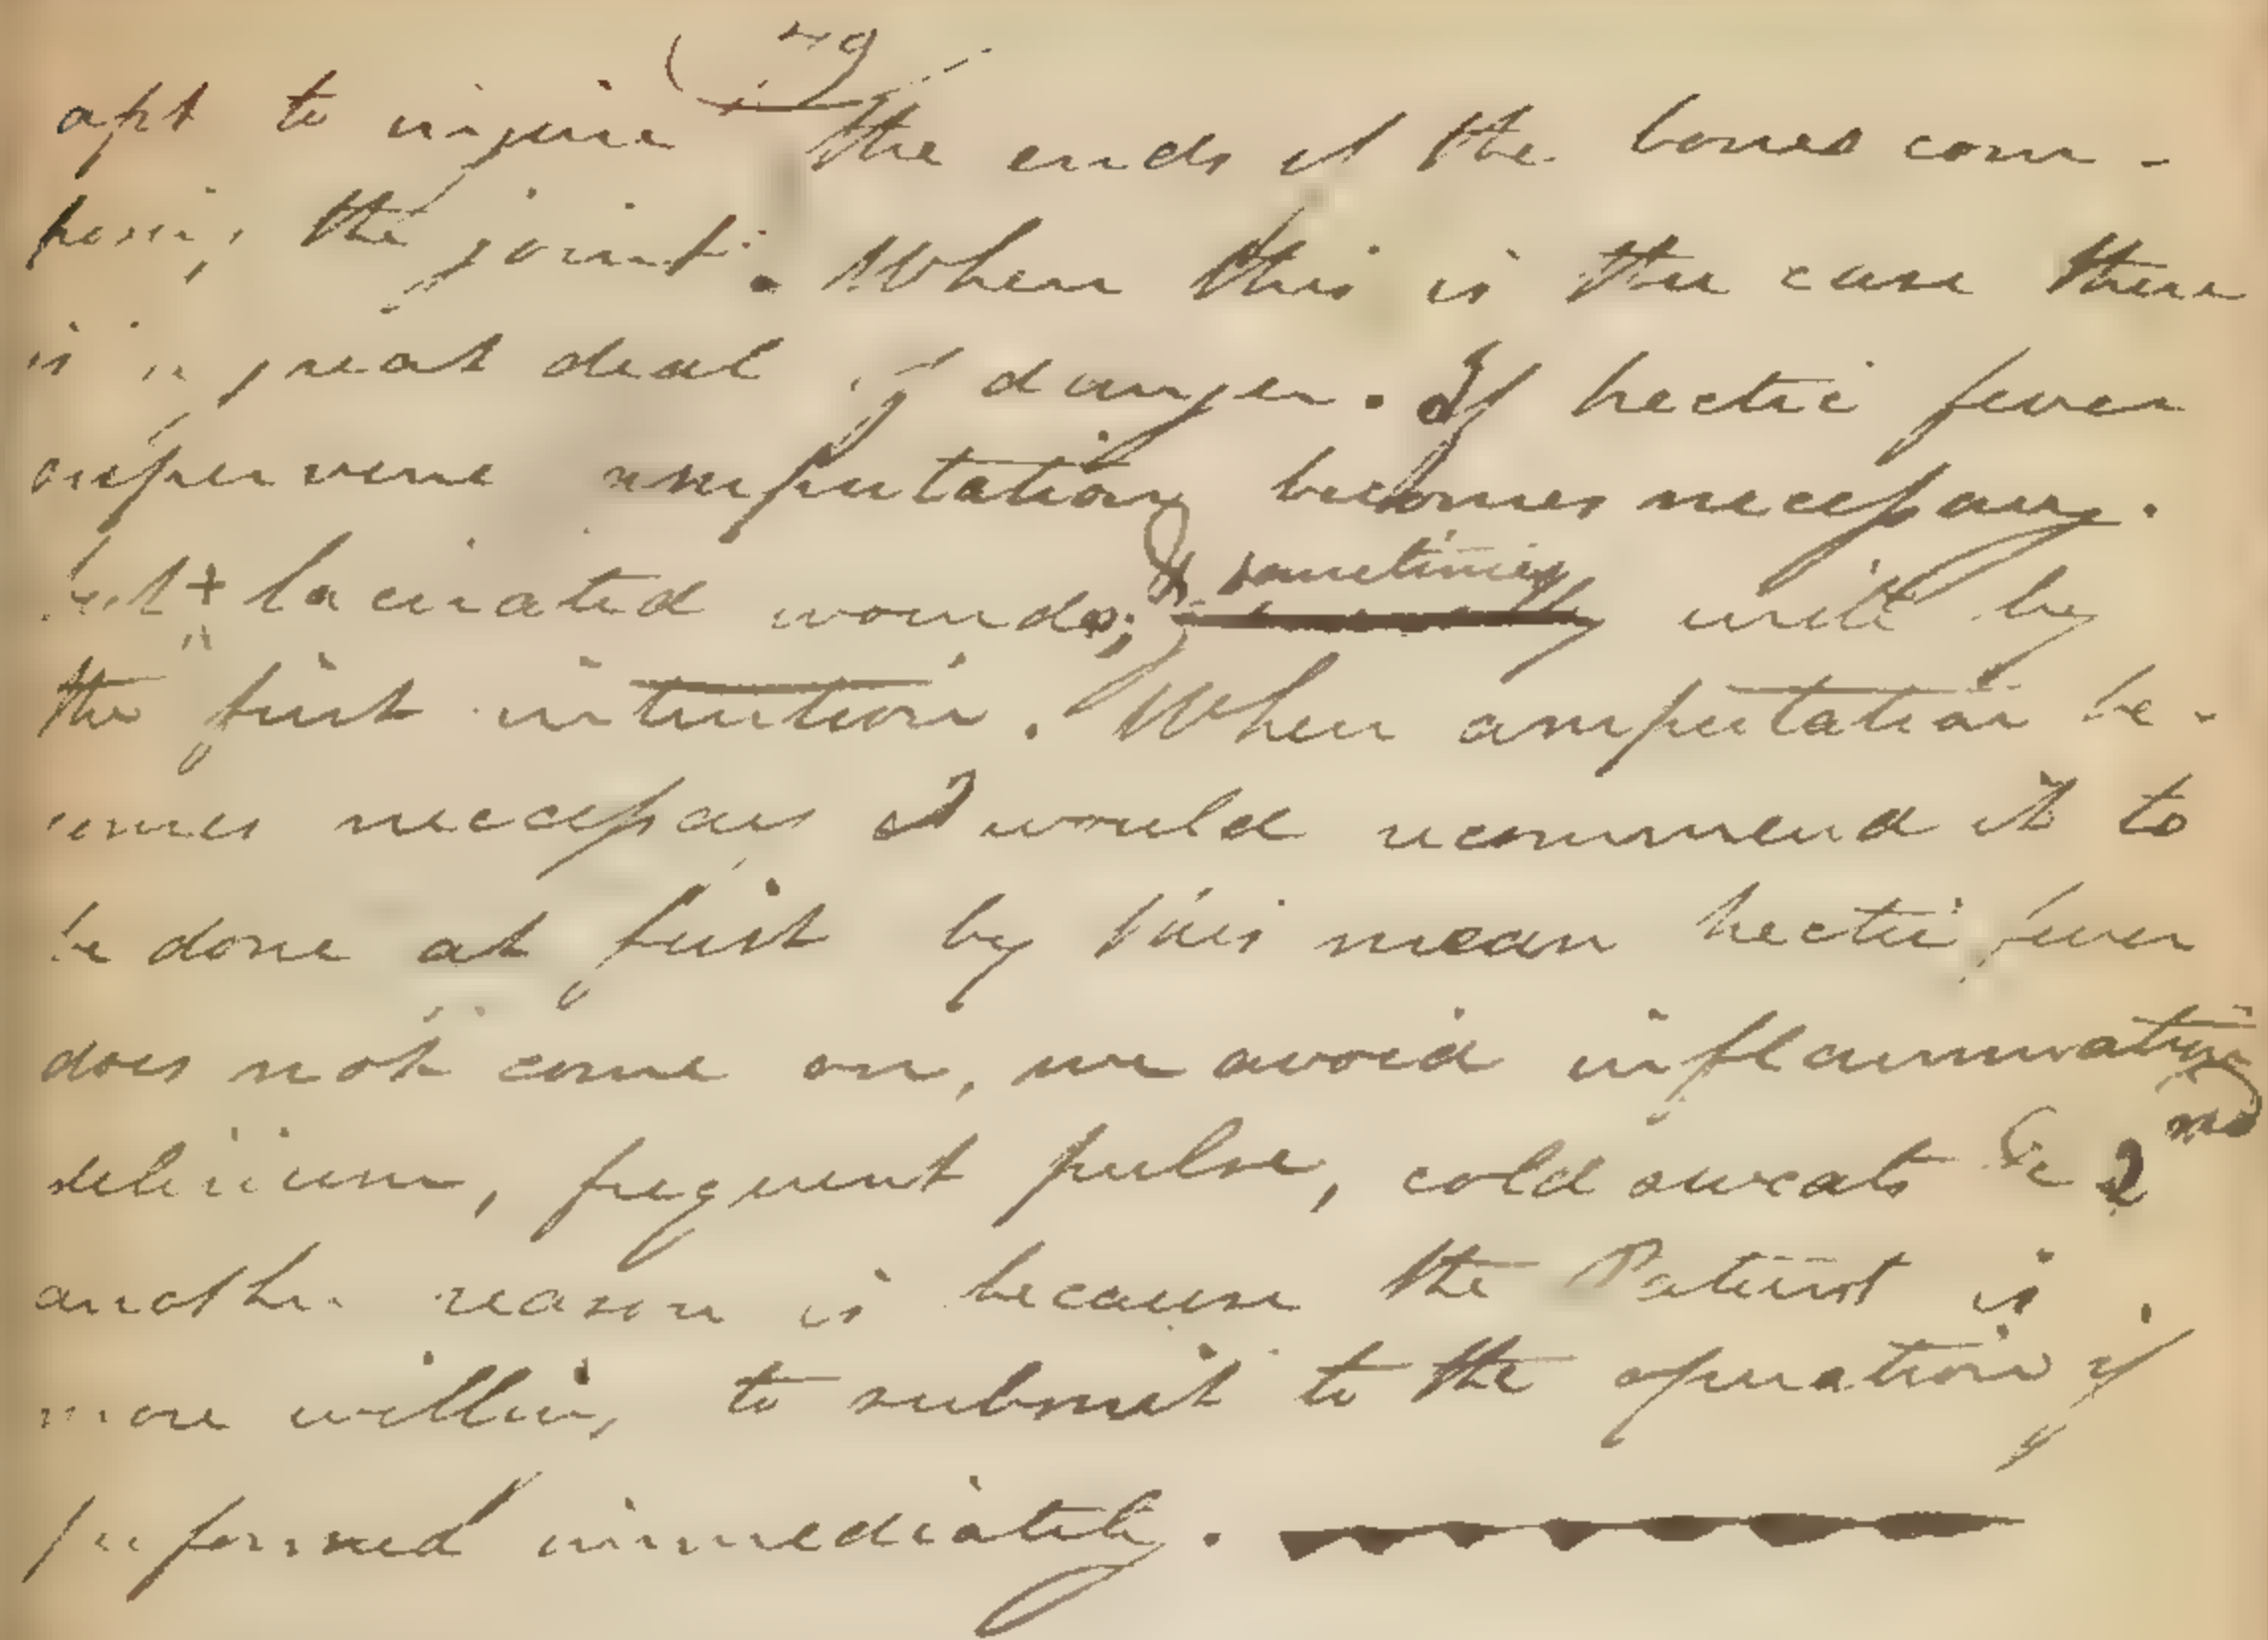 79
apt to injure the ends of the bones com-
posing the joint. When this is the case there
is a great deal of danger. If hectic fever
supervene amputation becomes necessary.
Cut + lacerated wounds; sometimes unite by
the first intention. When amputation be-
comes necessary I would recommend it to
be done at first by this mean hectic fever
does not come on, we avoid inflammation
delirium, frequent pulse, cold sweats &c 2nd
another reason is because the Patient is
more willing to submit to the operation if
performed immediately.